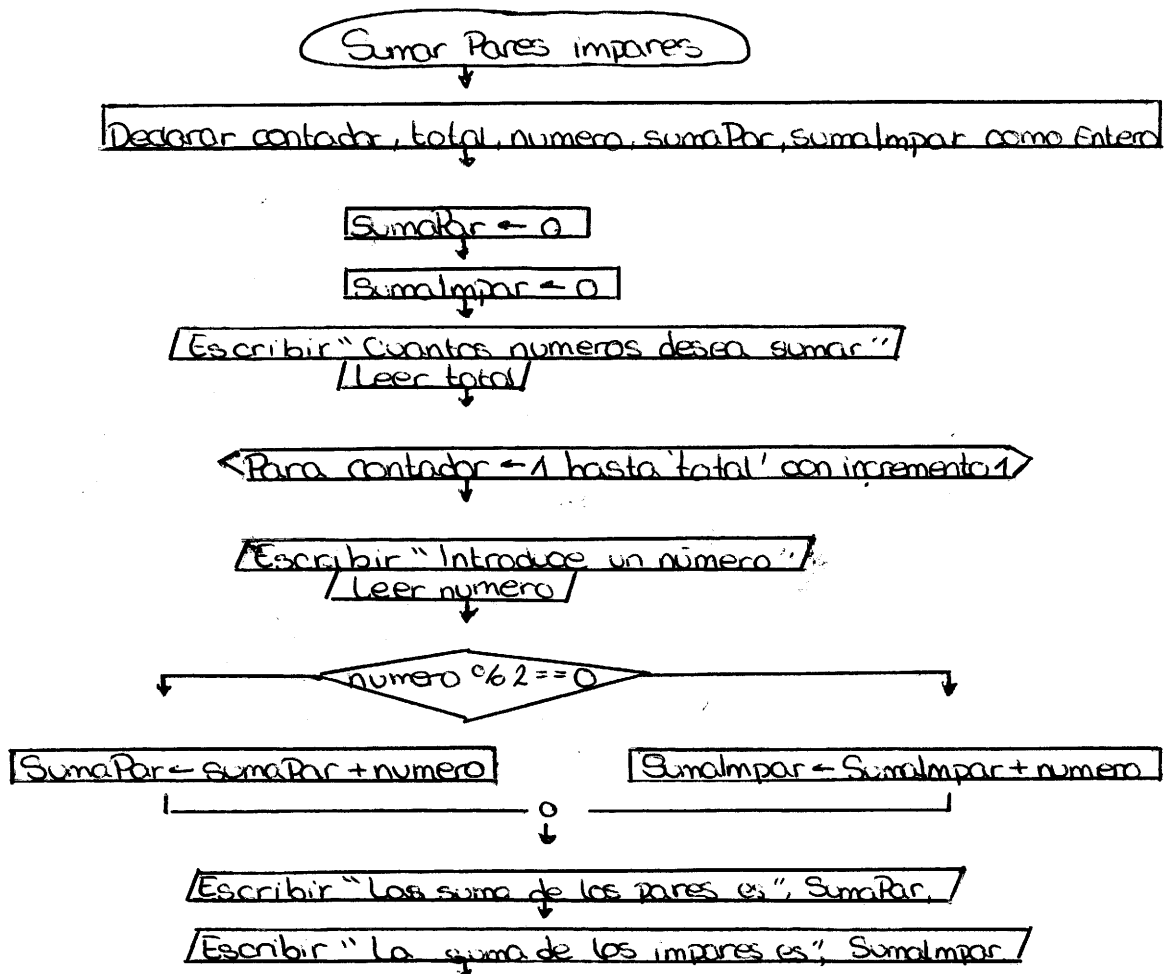 Sumar Pares impares
Declarar contador, total, numero, sumaPar, sumaImpar como Entero
SumaPar ← 0
SumaImpar ← 0
Escribir "Cuantos numeros desea sumar"
Leer total
Para contador ← 1 hasta 'total' con incremento 1
Escribir "Introduce un número"
Leer numero
numero % 2 == 0
SumaPar ← sumaPar + numero
SumaImpar ← SumaImpar + numero
Escribir "Las suma de los pares es", SumaPar.
Escribir "La suma de los impares es", SumaImpar